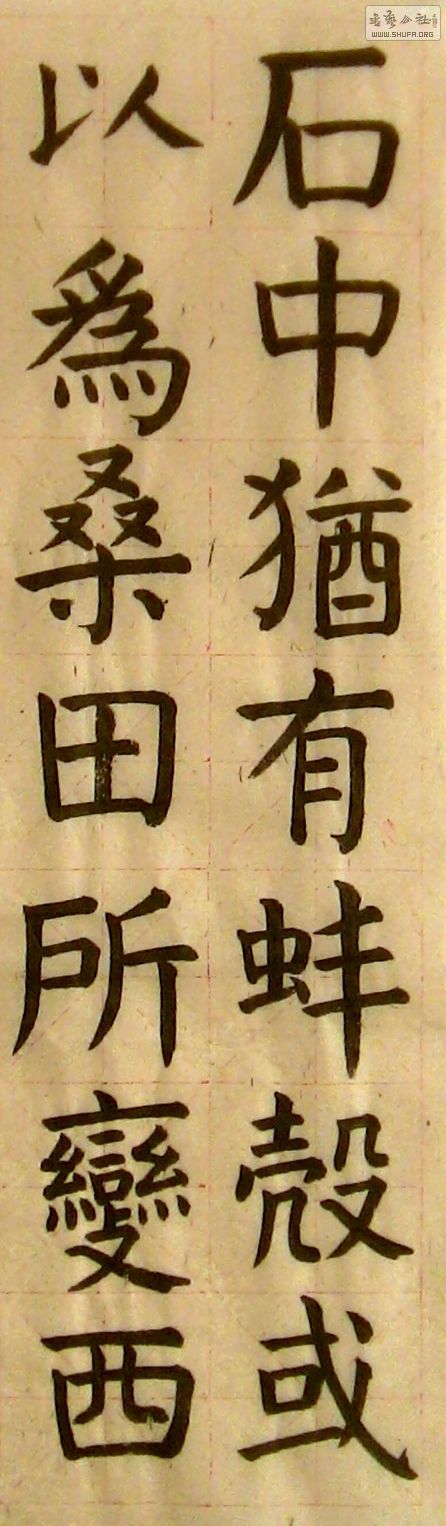 石中猶有蚌殼或
以為桑田所變西
书艺公社
WWW.SHUFA.ORG